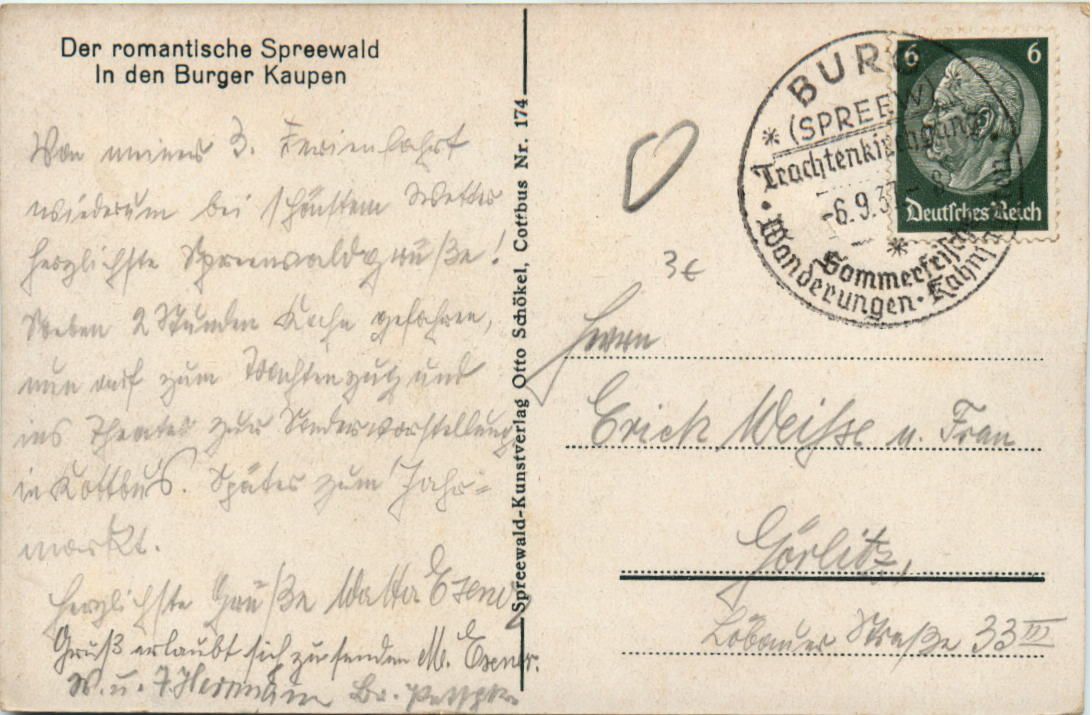 Der romantische Spreewald
In den Burger Kaupen
Von meiner 3. Ferienfahrt
wiederum bei schönstem Wetter
herzlichste Spreewaldgrüße!
Soeben 2 Stunden Kahn gefahren,
nun auf zum Trachtenzug und
ins Theater zur Sondervorstellung
in Kottbus. Später zum Jahr-
markt.
Herzlichste Grüße
Gruß erlaubt sich zu senden M. Exner.
W. u.
Spreewald-Kunstverlag Otto Schökel, Cottbus Nr. 174
BURG
(SPREEW
Trachtenkirchgang
-6.9.37-8
Sommerfrische
Wanderungen · Kahnf
6 6
Deutsches Reich
3€
Herrn
Erich Weisse u. Frau
Görlitz,
Löbauer Straße 33 III